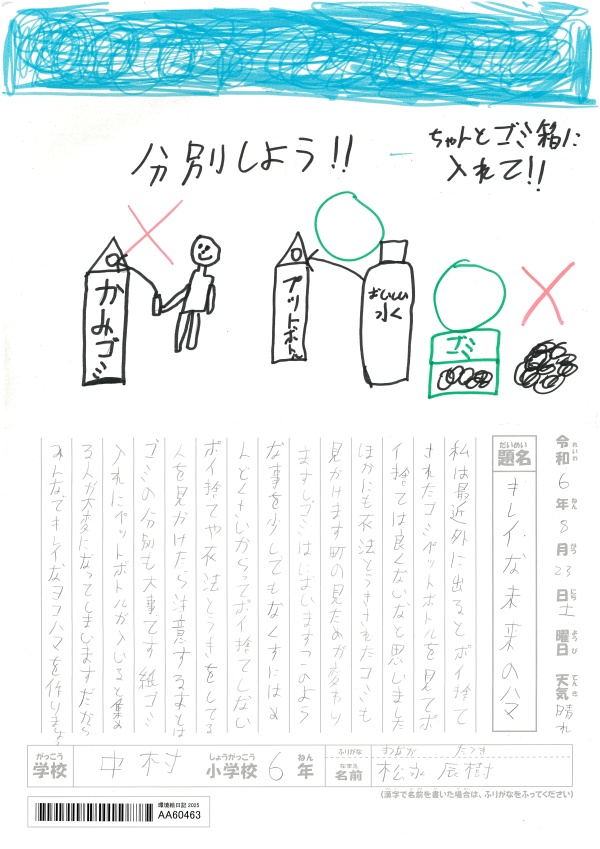 分別しよう!!
ちゃんとゴミ箱に
入れて!!
かみゴミ
プットボトル
おいしい
水く
ゴミ
令和6年8月23日土曜日 天気晴れ
れいわ ねん がつ にち ようび てんき
だいめい
題名
キレイな未来のハマ
私は最近外に出るとポイ捨て
されたゴミペットボトルを見てポ
イ捨ては良くないなと思いました
ほかにも衣法とうきされたゴミも
見かけます町の見ためが変わり
ますしゴミはにおいますつこのよう
な事を少してもなくすにはめ
んどくさいからってポイ捨てしない
ポイ捨てや衣法とうきをしてる
人を見かけたら注意するまとは
ゴミの分別も大事です 紙ゴミ
入れにペットボトルが入いると集め
る人が大変になってしまいますだから
みんなでキレイなヨコハマを作りましょう
がっこう
学校
中村
しょうがっこう
小学校
6
ねん
年
ふりがな
まつなが たつき
なまえ
名前
松永 辰樹
(漢字で名前を書いた場合は、ふりがなをふってください)
環境絵日記 2025
AA60463